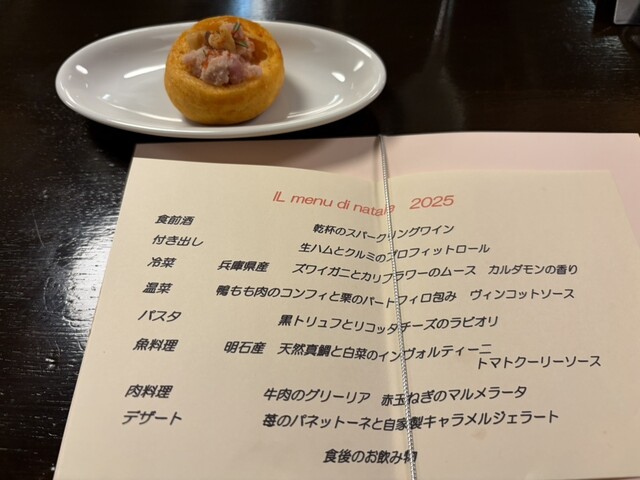 IL menu di natale 2025
食前酒 乾杯のスパークリングワイン
付き出し 生ハムとクルミのプロフィットロール
冷菜 兵庫県産 ズワイガニとカリフラワーのムース カルダモンの香り
温菜 鴨もも肉のコンフィと栗のパートフィロ包み ヴィンコットソース
パスタ 黒トリュフとリコッタチーズのラビオリ
魚料理 明石産 天然真鯛と白菜のインヴォルティーニ
トマトクーリーソース
肉料理 牛肉のグリーリア 赤玉ねぎのマルメラータ
デザート 苺のパネットーネと自家製キャラメルジェラート
食後のお飲み物